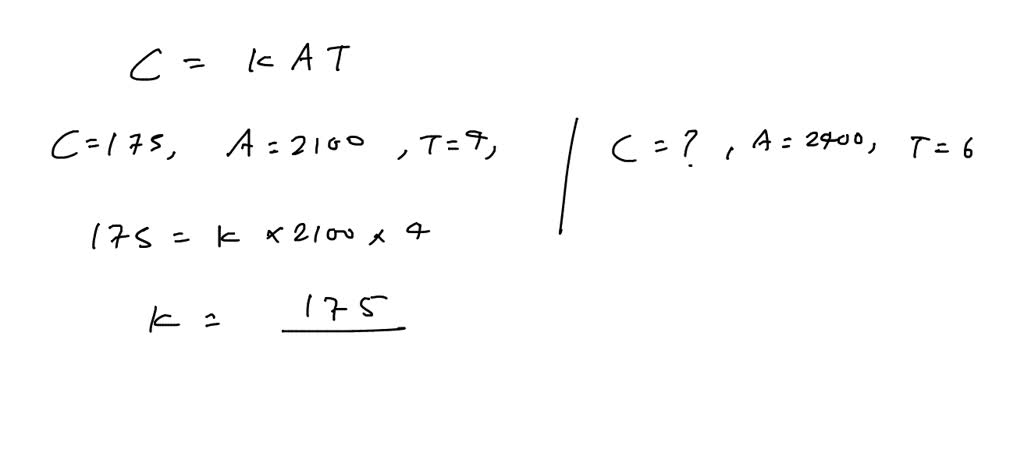 C = kAT
C=175, A=2100, T=4, / C=?, A=2400, T=6
175 = k × 2100 × 4
k = 175